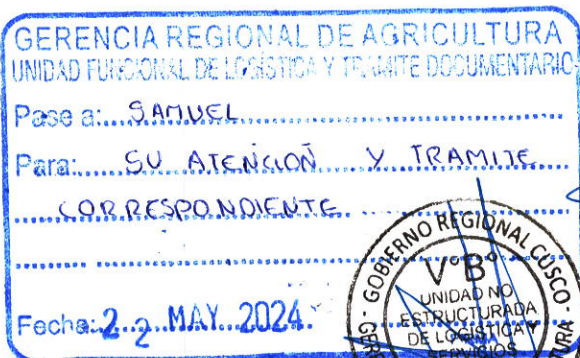 GERENCIA REGIONAL DE AGRICULTURA
UNIDAD FUNCIONAL DE LOGÍSTICA Y TRAMITE DOCUMENTARIO
Pase a: SAMUEL
Para: SU ATENCIOÑ Y TRAMITE
CORRESPONDIENTE
Fecha: 2 2 MAY 2024
GOBIERNO REGIONAL CUSCO
V°B°
UNIDAD NO
ESTRUCTURADA
DE LOGÍSTICA Y
SERVICIOS